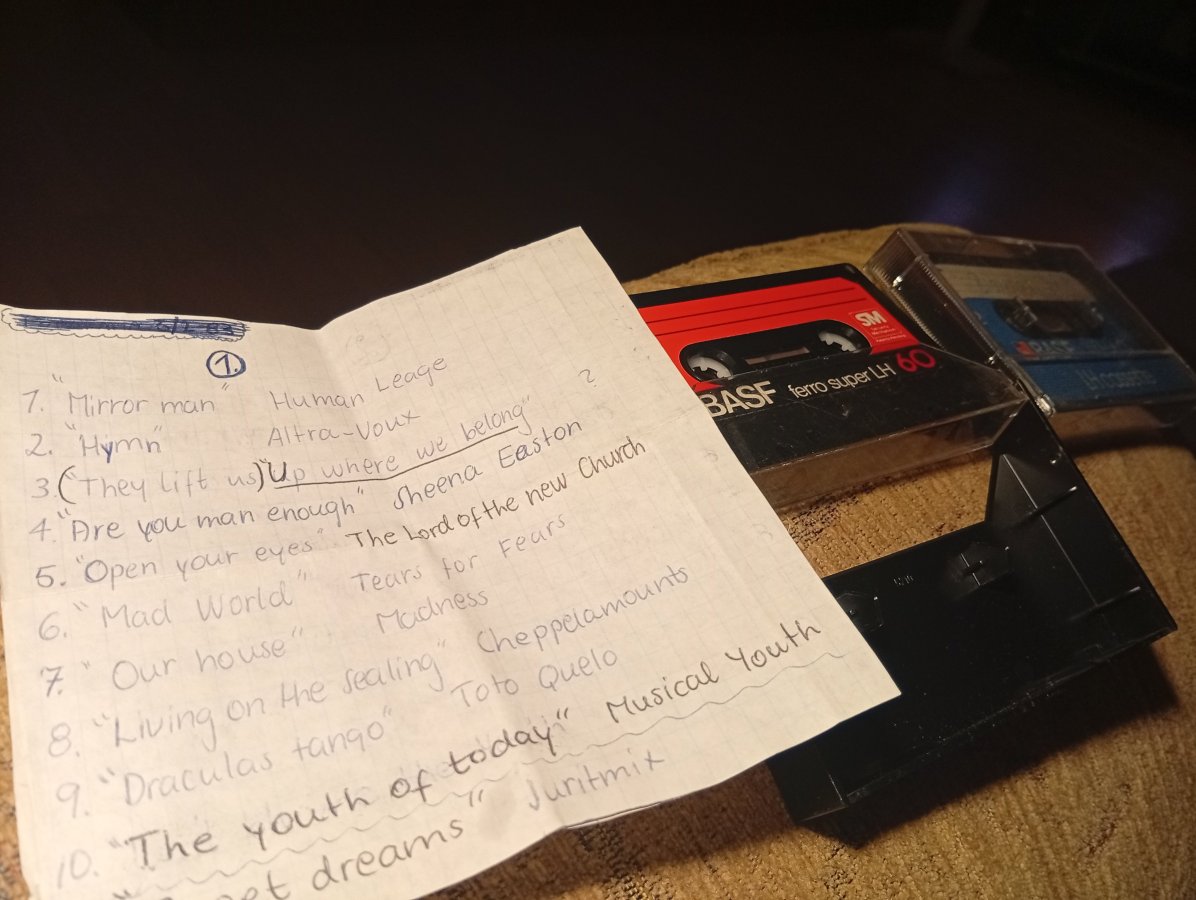 1.
1. "Mirror man" Human Leage
2. "Hymn" Altra-Voux
3. ("They lift us) "Up where we belong" ?
4. "Are you man enough" Sheena Easton
5. "Open your eyes" The Lord of the new Church
6. "Mad World" Tears for Fears
7. "Our house" Madness
8. "Living on the sealing" Cheppelamounts
9. "Draculas tango" Toto Quelo
10. "The youth of today" Musical Youth
dreams" Juritmix
SM
BASF ferro super LH 60
BASF